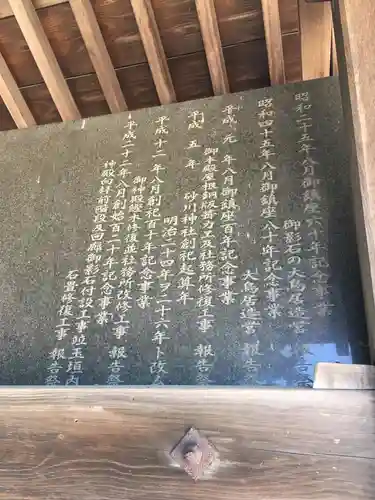 昭和二十五年八月御鎮座六十年記念事業
御影石の大鳥居造営 報告祭
昭和四十五年八月御鎮座八十年記念事業
大鳥居造営 報告祭
平成 元 年八月御鎮座百年記念事業
御本殿屋根銅版葺力工及社務所修復工事 報告祭
平成 五 年 砂川神社創祀起算年
明治二十四年ヲ二十六年ト改ム
平成十二 年八月創祀百十年記念事業
御神殿鰹木修復並社務所改修工事 報告祭
平成二十二年八月創始百二十年記念事業
神殿向拝前階段及回廊御影石付設工事並玉垣内
石畳修復工事 報告祭